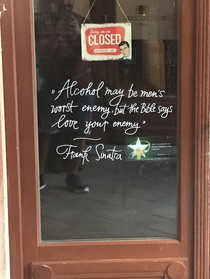 Sorry, we are
CLOSED
„Alcohol may be men's
worst enemy, but the Bible says
love your enemy."
Frank Sinatra